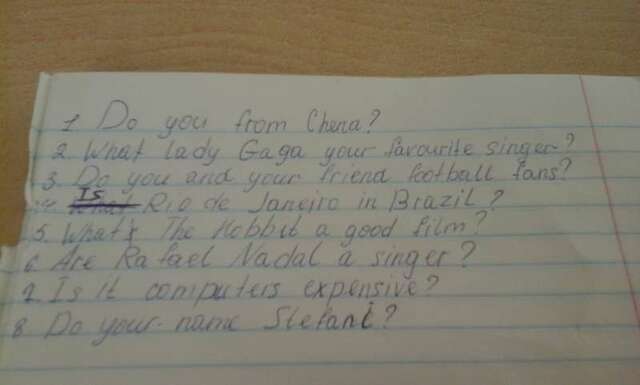 1 Do you from Chena?
2. What lady Gaga your favourite singer?
3. Do you and your friend football fans?
4. Is Rio de Janeiro in Brazil?
5. What's The Hobbit a good film?
6. Are Rafael Nadal a singer?
7. Is it computers expensive?
8 Do your name Stefani?